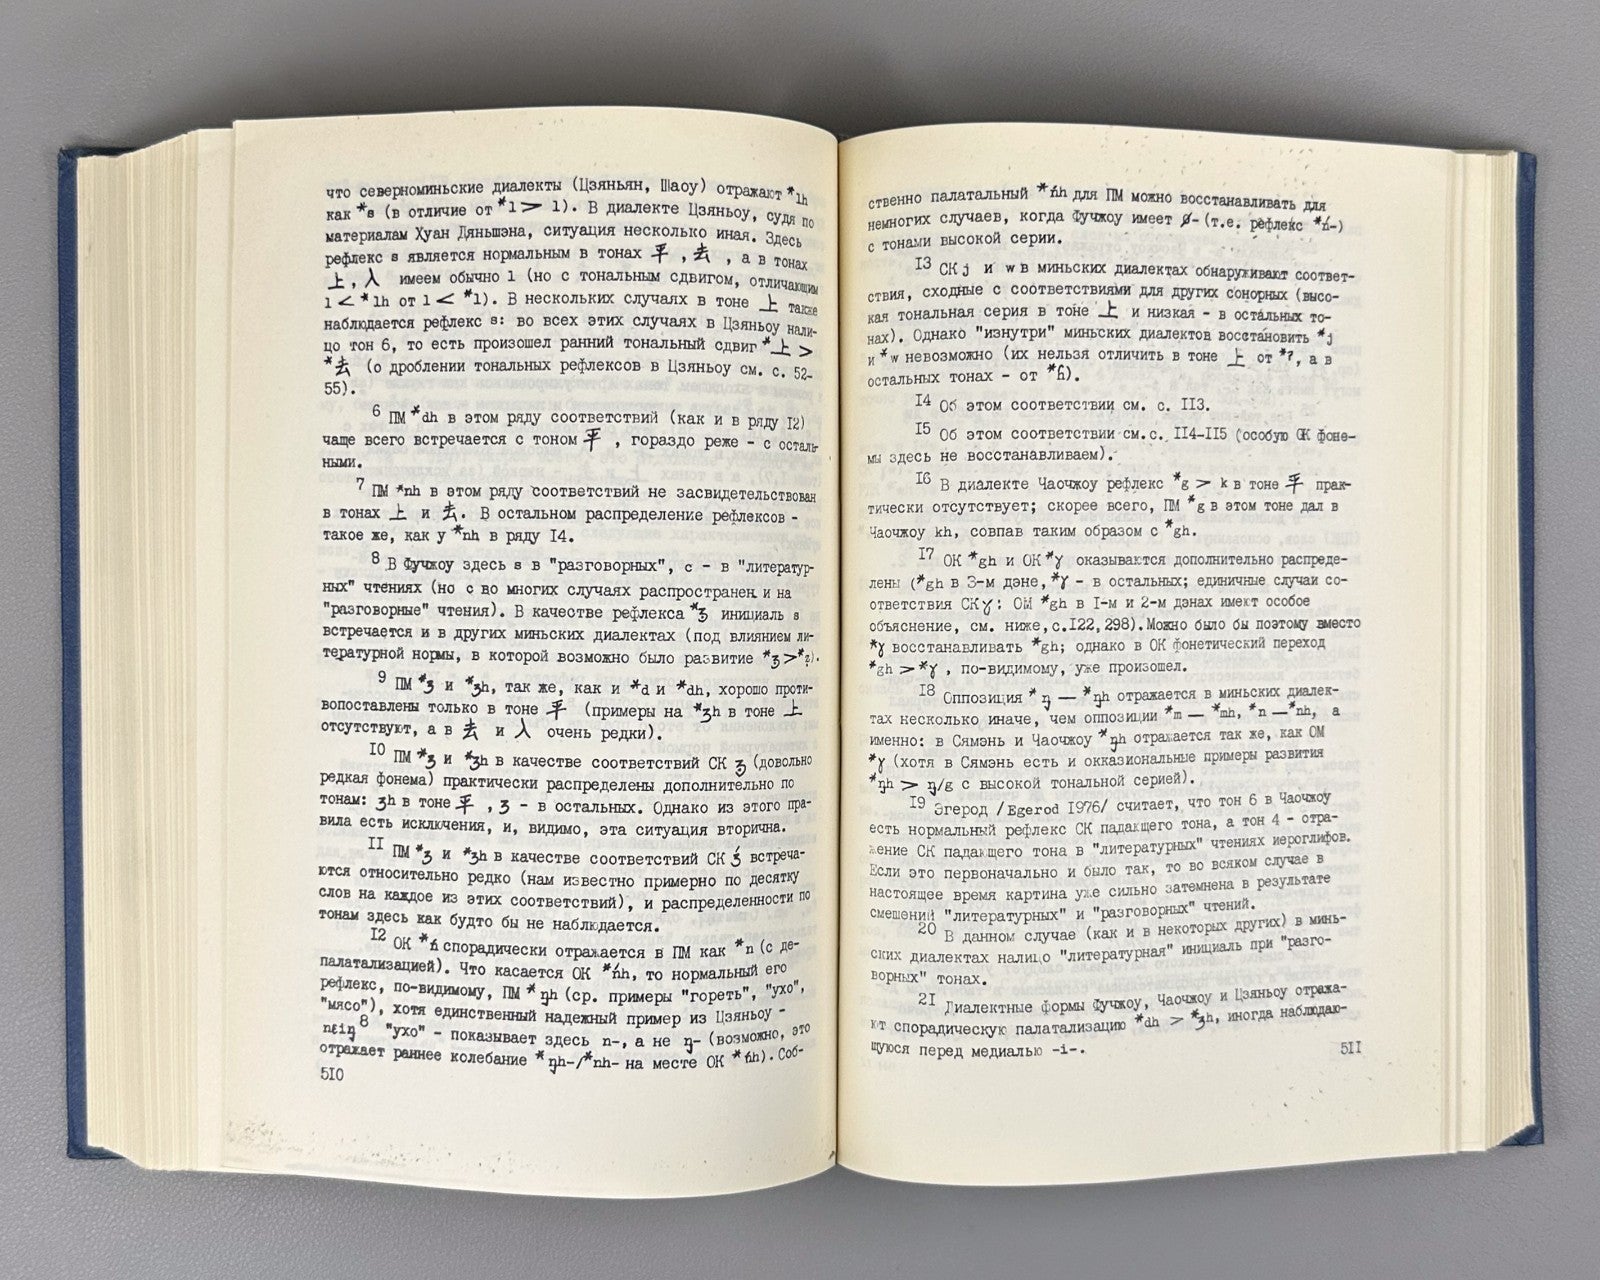 что северноминьские диалекты (Цзяньян, Шаоу) отражают *lh
как *s (в отличие от *l > l). В диалекте Цзяньоу, судя по
материалам Хуан Дяньшэна, ситуация несколько иная. Здесь
рефлекс s является нормальным в тонах 平, 去, а в тонах
上, 入 имеем обычно l (но с тональным сдвигом, отличающим
l < *lh от l < *l). В нескольких случаях в тоне 上 также
наблюдается рефлекс s: во всех этих случаях в Цзяньоу нали-
цо тон 6, то есть произошел ранний тональный сдвиг *上 >
*去 (о дроблении тональных рефлексов в Цзяньоу см. с. 52-
55).
6 ПМ *dh в этом ряду соответствий (как и в ряду I2)
чаще всего встречается с тоном 平, гораздо реже - с осталь-
ными.
7 ПМ *nh в этом ряду соответствий не засвидетельствован
в тонах 上 и 去. В остальном распределение рефлексов -
такое же, как у *nh в ряду I4.
8 В Фучжоу здесь s в "разговорных", c - в "литератур-
ных" чтениях (но c во многих случаях распространен и на
"разговорные" чтения). В качестве рефлекса *ʒ инициаль s
встречается и в других миньских диалектах (под влиянием ли-
тературной нормы, в которой возможно было развитие *ʒ > *z).
9 ПМ *ʒ и *ʒh, так же, как и *d и *dh, хорошо проти-
вопоставлены только в тоне 平 (примеры на *ʒh в тоне 上
отсутствуют, а в 去 и 入 очень редки).
I0 ПМ *ʒ и *ʒh в качестве соответствий СК ʒ (довольно
редкая фонема) практически распределены дополнительно по
тонам: ʒh в тоне 平, ʒ - в остальных. Однако из этого пра-
вила есть исключения, и, видимо, эта ситуация вторична.
II ПМ *ʒ и *ʒh в качестве соответствий СК ʒ́ встреча-
ются относительно редко (нам известно примерно по десятку
слов на каждое из этих соответствий), и распределенности по
тонам здесь как будто бы не наблюдается.
I2 ОК *ń спорадически отражается в ПМ как *n (с де-
палатализацией). Что касается ОК *ńh, то нормальный его
рефлекс, по-видимому, ПМ *ŋh (ср. примеры "гореть", "ухо",
"мясо"), хотя единственный надежный пример из Цзяньоу -
nɛiŋ8 "ухо" - показывает здесь n-, а не ŋ- (возможно, это
отражает раннее колебание *ŋh-/*nh- на месте ОК *ńh). Соб-
5I0
ственно палатальный *ńh для ПМ можно восстанавливать для
немногих случаев, когда Фучжоу имеет ∅- (т.е. рефлекс *ń-)
с тонами высокой серии.
I3 СК j и w в миньских диалектах обнаруживают соответ-
ствия, сходные с соответствиями для других сонорных (высо-
кая тональная серия в тоне 上 и низкая - в остальных то-
нах). Однако "изнутри" миньских диалектов восстановить *j
и *w невозможно (их нельзя отличить в тоне 上 от *ʔ, а в
остальных тонах - от *ɦ).
I4 Об этом соответствии см. с. II3.
I5 Об этом соответствии см.с. II4-II5 (особую ОК фоне-
мы здесь не восстанавливаем).
I6 В диалекте Чаочжоу рефлекс *g > k в тоне 平 прак-
тически отсутствует; скорее всего, ПМ *g в этом тоне дал в
Чаочжоу kh, совпав таким образом с *gh.
I7 ОК *gh и ОК *ɣ оказываются дополнительно распреде-
лены (*gh в 3-м дэне, *ɣ - в остальных; единичные случаи со-
ответствия СК ɣ : ОМ *gh в I-м и 2-м дэнах имеют особое
объяснение, см. ниже, с.I22,298). Можно было бы поэтому вместо
*ɣ восстанавливать *gh; однако в ОК фонетический переход
*gh > *ɣ, по-видимому, уже произошел.
I8 Оппозиция *ŋ — *ŋh отражается в миньских диалек-
тах несколько иначе, чем оппозиции *m — *mh, *n — *nh, а
именно: в Сямэнь и Чаочжоу *ŋh отражается так же, как ОМ
*ɣ (хотя в Сямэнь есть и окказиональные примеры развития
*ŋh > ŋ/g с высокой тональной серией).
I9 Эгерод /Egerod I976/ считает, что тон 6 в Чаочжоу
есть нормальный рефлекс СК падающего тона, а тон 4 - отра-
жение СК падающего тона в "литературных" чтениях иероглифов.
Если это первоначально и было так, то во всяком случае в
настоящее время картина уже сильно затемнена в результате
смешений "литературных" и "разговорных" чтений.
20 В данном случае (как и в некоторых других) в минь-
ских диалектах налицо "литературная" инициаль при "разго-
ворных" тонах.
2I Диалектные формы Фучжоу, Чаочжоу и Цзяньоу отража-
ют спорадическую палатализацию *dh > *ʒh, иногда наблюдаю-
щуюся перед медиалью -i-.
5II